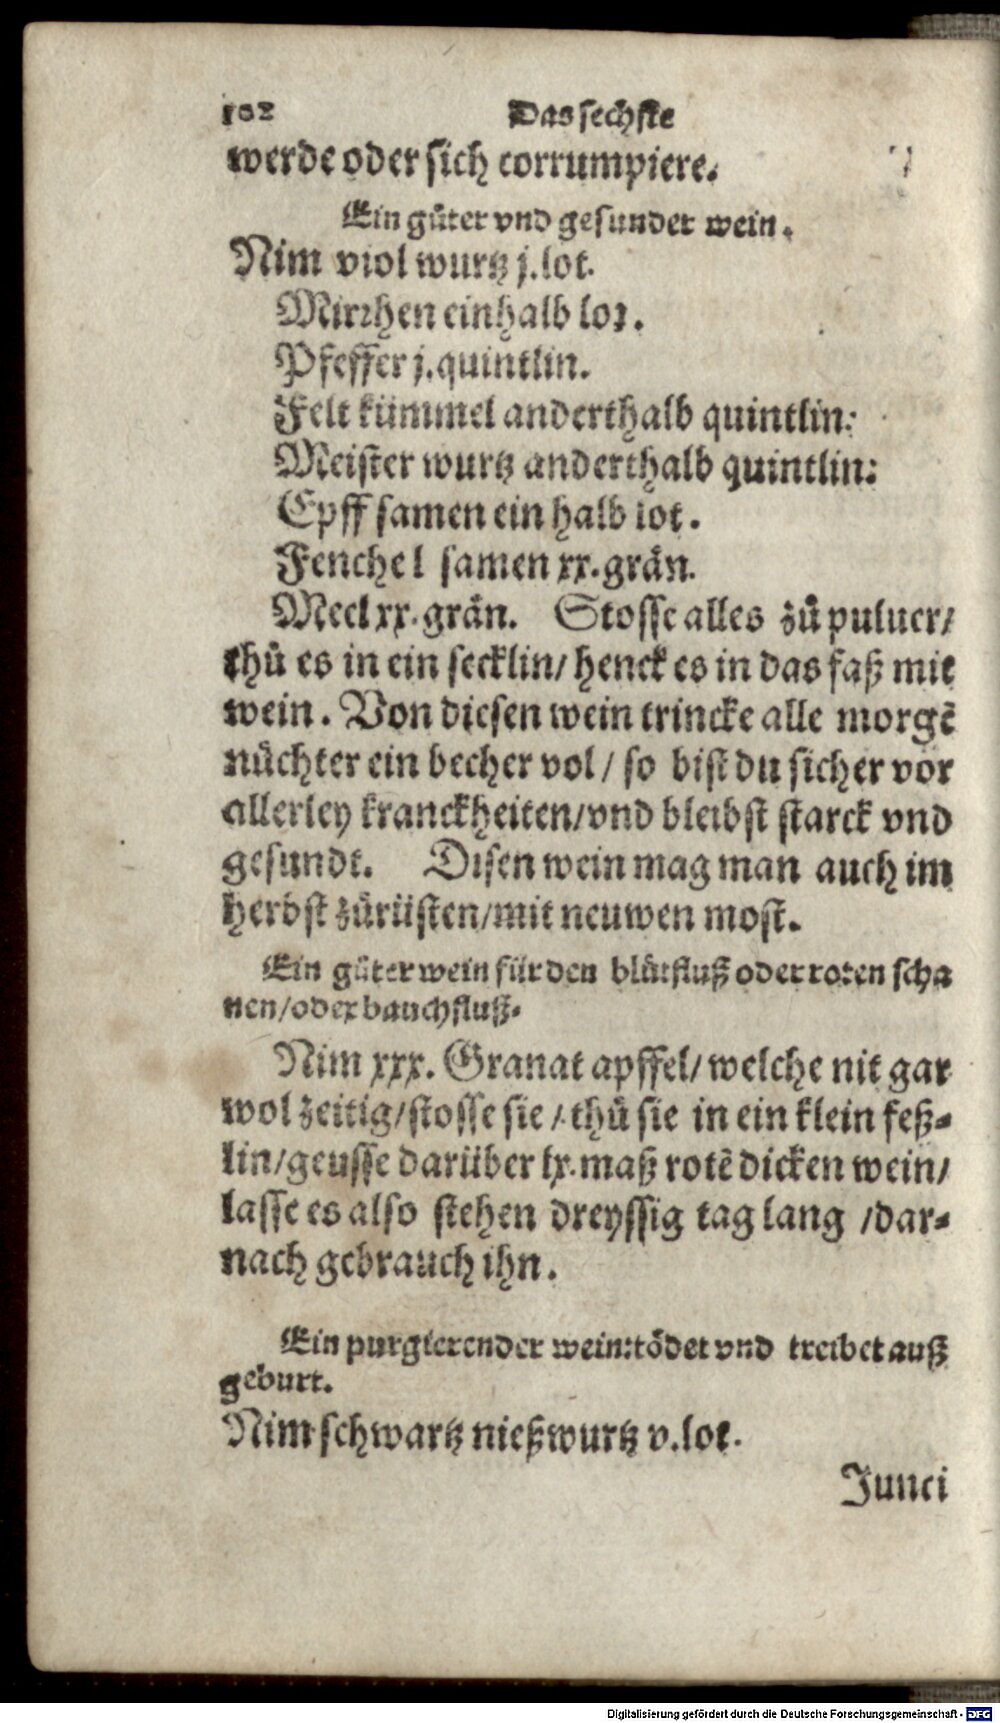 102 Das sechste
werde oder sich corrumpiere.
Ein gůter vnd gesunder wein.
Nim viol wurtz j. lot.
Mirrhen ein halb lot.
Pfeffer j. quintlin.
Felt kümmel anderthalb quintlin:
Meister wurtz anderthalb quintlin:
Epff samen ein halb lot.
Fenchel samen xx. grän.
Meel xx. grän. Stosse alles zů puluer/
thů es in ein secklin/ henck es in das faß mit
wein. Von diesen wein trincke alle morgẽ
nüchter ein becher vol/ so bist du sicher vor
allerley kranckheiten/ vnd bleibst starck vnd
gesundt. Disen wein mag man auch im
herbst zůrüsten/ mit neuwen most.
Ein gůter wein für den blůtfluß oder roten scha
nen/ oder bauchfluß.
Nim xxx. Granat apffel/ welche nit gar
wol zeitig/ stosse sie/ thů sie in ein klein feß-
lin/ geusse darüber lx. maß rotẽ dicken wein/
lasse es also stehen dreyssig tag lang/ dar-
nach gebrauch ihn.
Ein purgierender wein: tödet vnd treibet auß
geburt.
Nim schwartz nießwurtz v. lot.
Junci
Digitalisierung gefördert durch die Deutsche Forschungsgemeinschaft - DFG